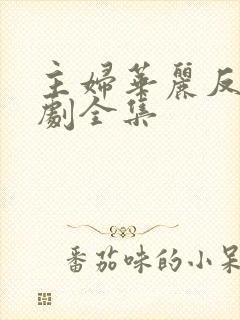 主婦華麗反
劇全集
番茄味的小呆